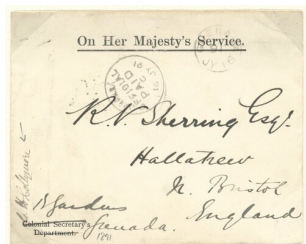 On Her Majesty's Service.
OFFICIAL
PAID
R. V. Sherring Esqr.
Hallatrow
N. Bristol
England
Grenada.
1891
Colonial Secretary's
Department.